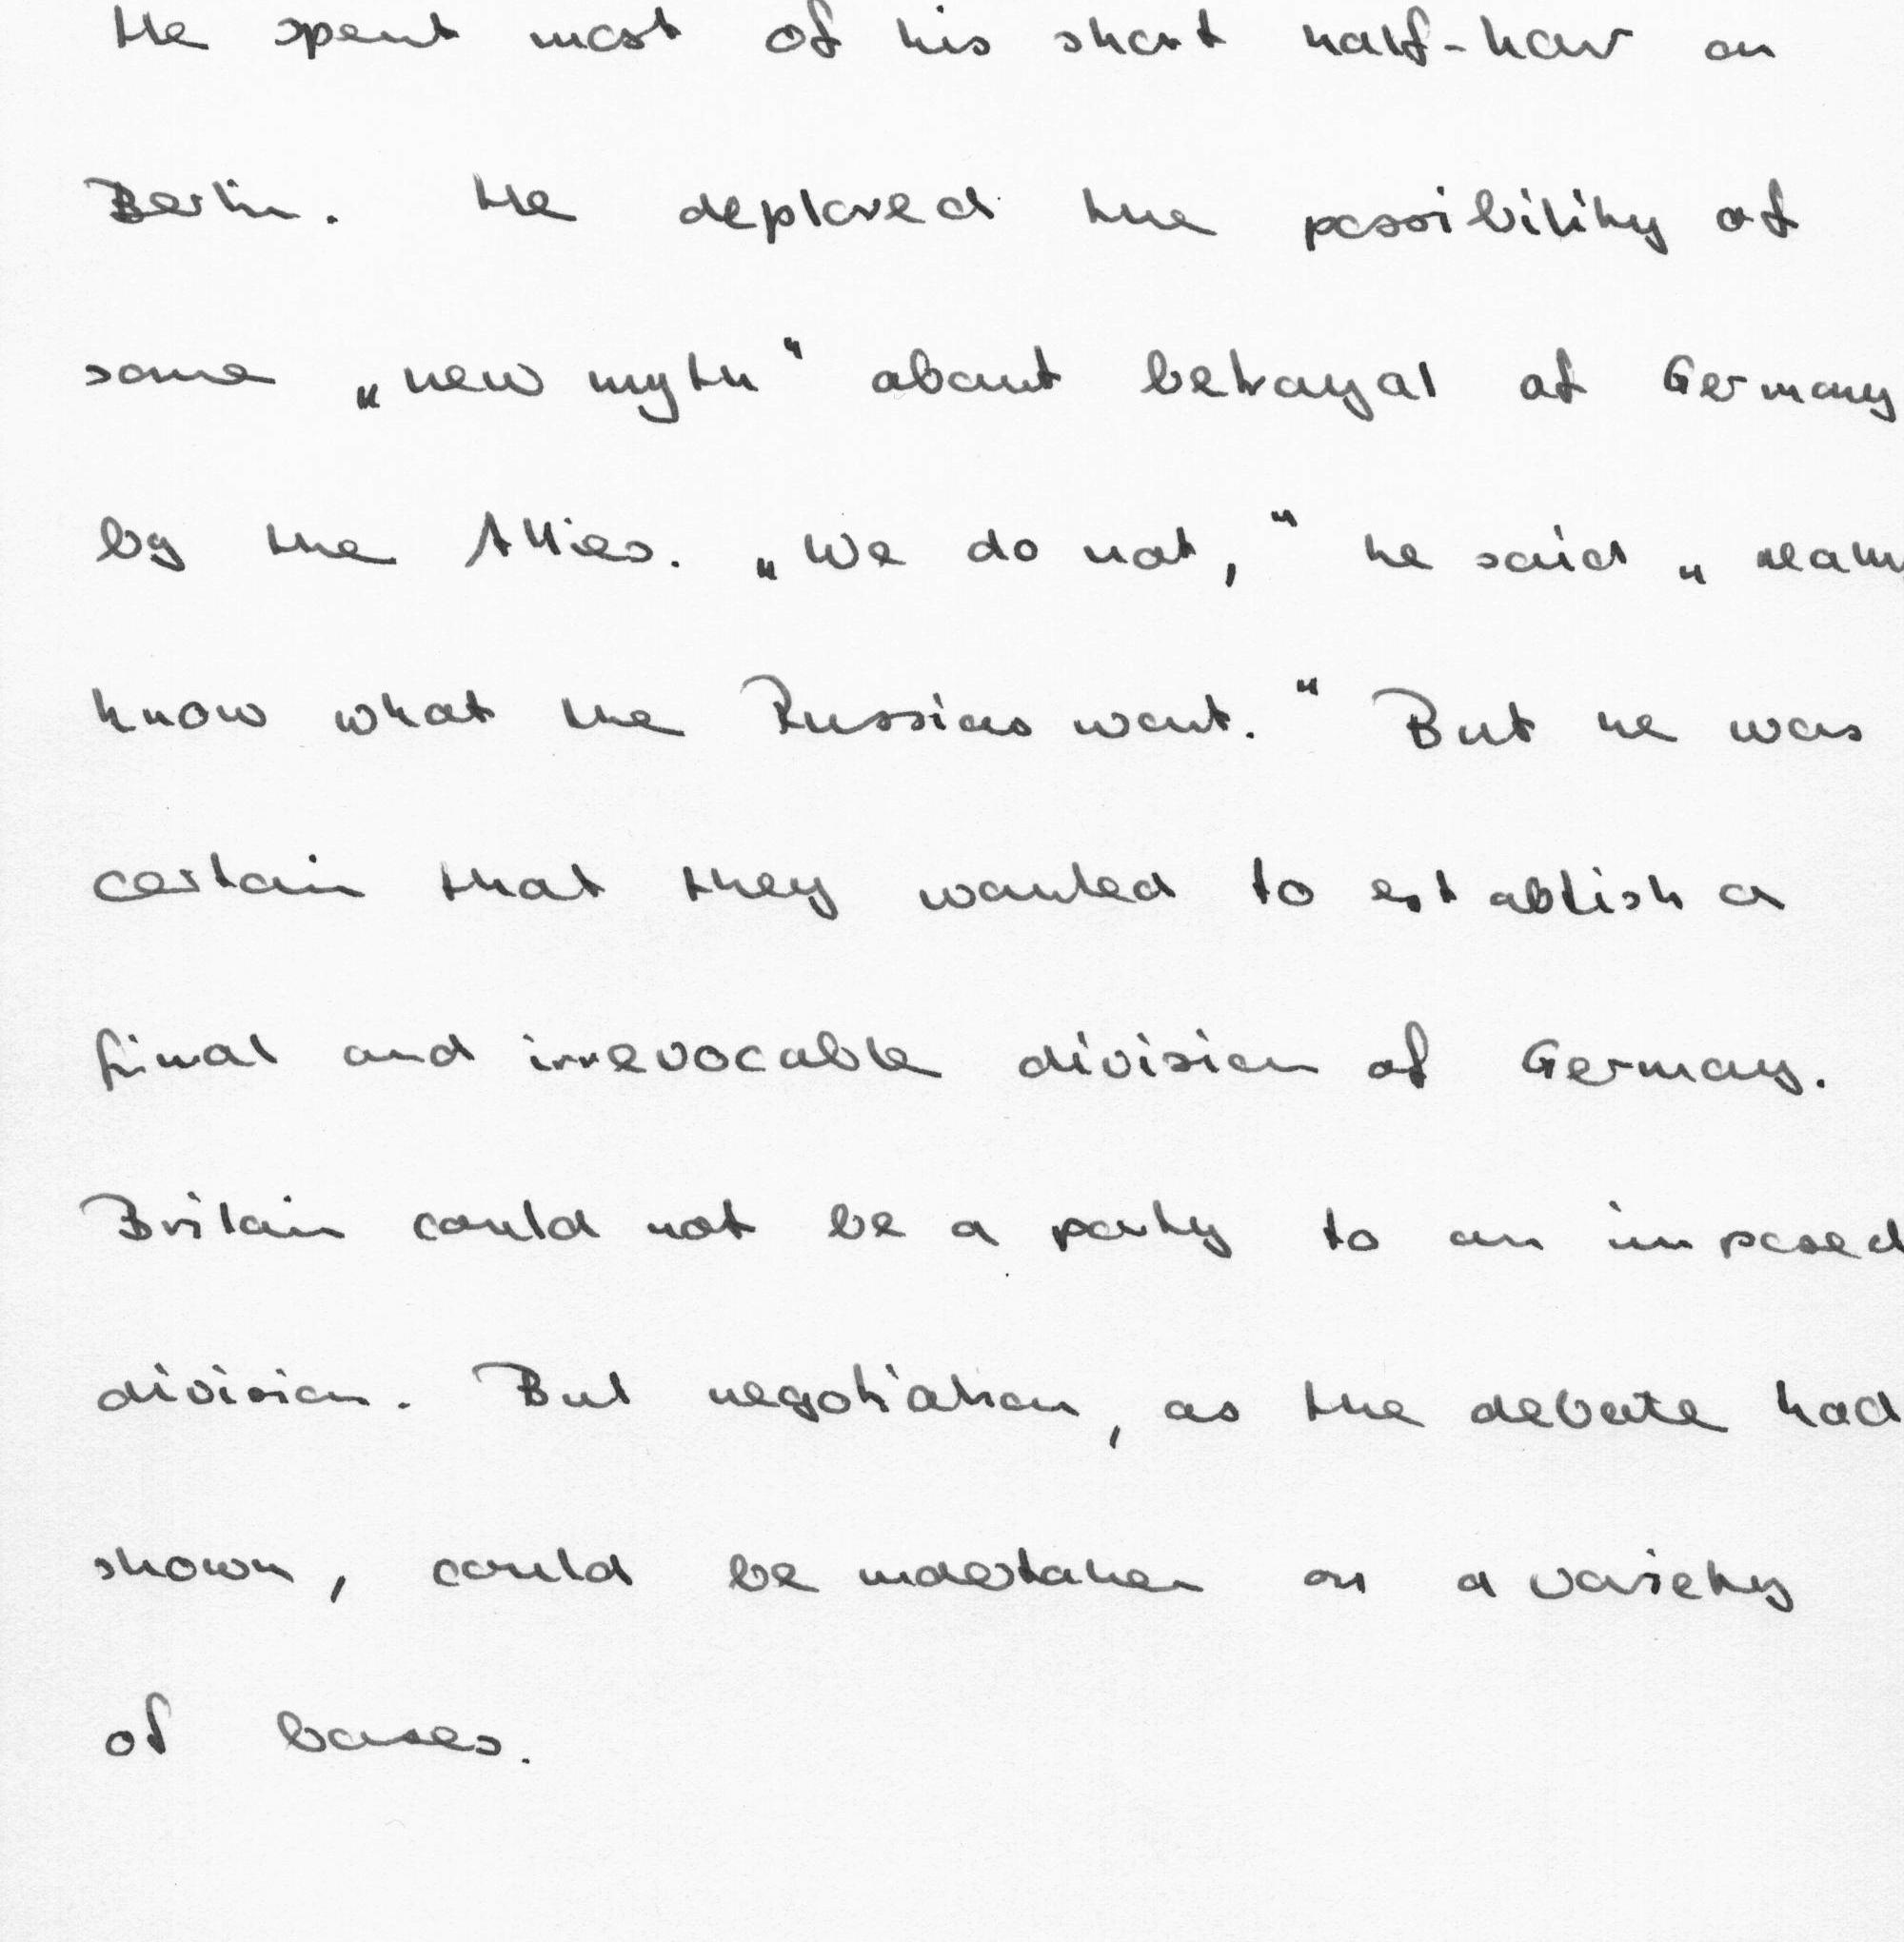 He spent most of his short half-hour on
Berlin. He deplored the possibility of
some „new myth" about betrayal of Germany
by the Allies. „We do not," he said „
know what the Russians want." But he was
certain that they wanted to establish a
final and irrevocable division of Germany.
Britain could not be a party to an imposed
division. But negotiation, as the debate had
shown, could be undertaken on a variety
of bases.